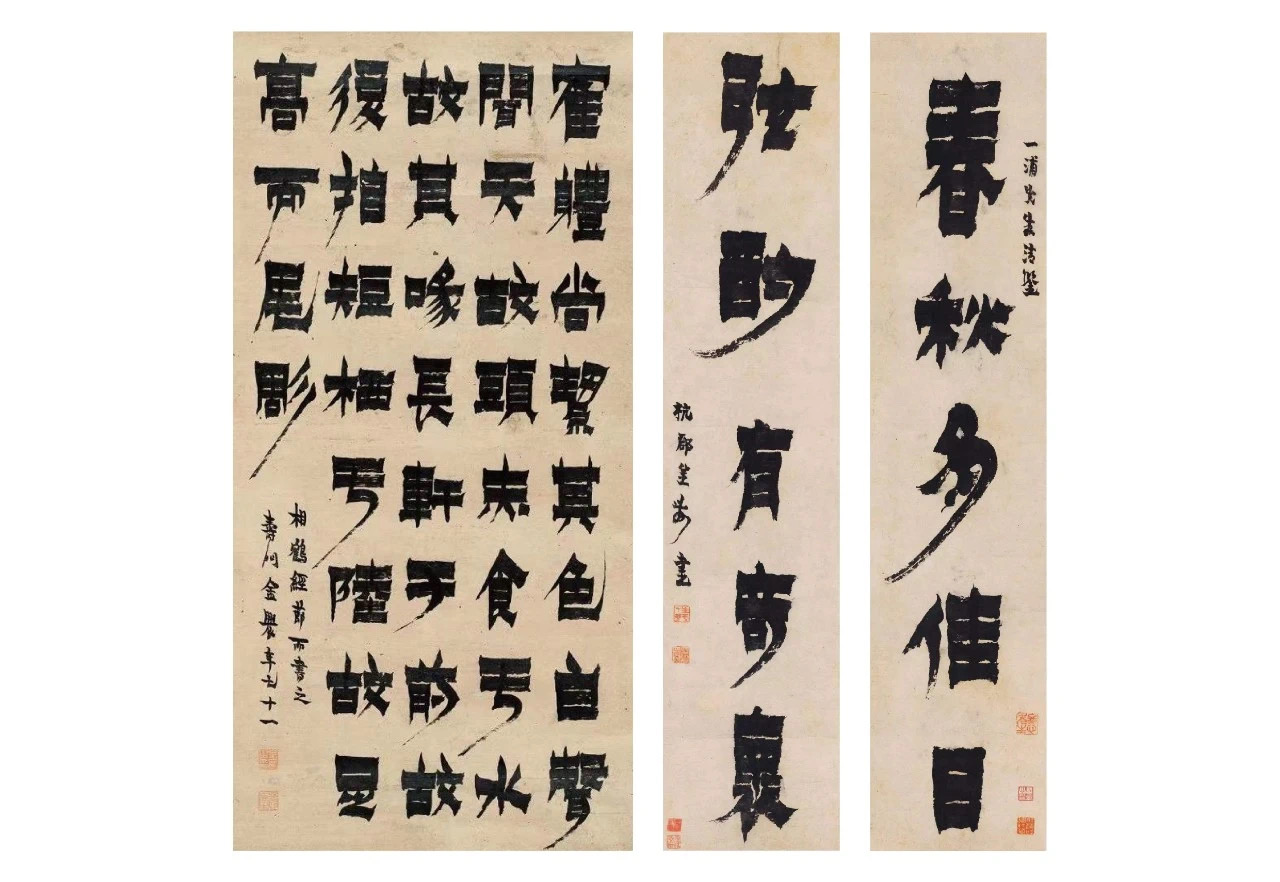 一浦先生清鑒
春秋多佳日
弦酌有奇褱
杭郡金農書
寉軆尚絜其色白聲
聞天故頭赤食亏水
故其喙長軒于前故
後指短栖亏陸故足
高而尾彫
相鶴經節而書之
壽門金農年十一